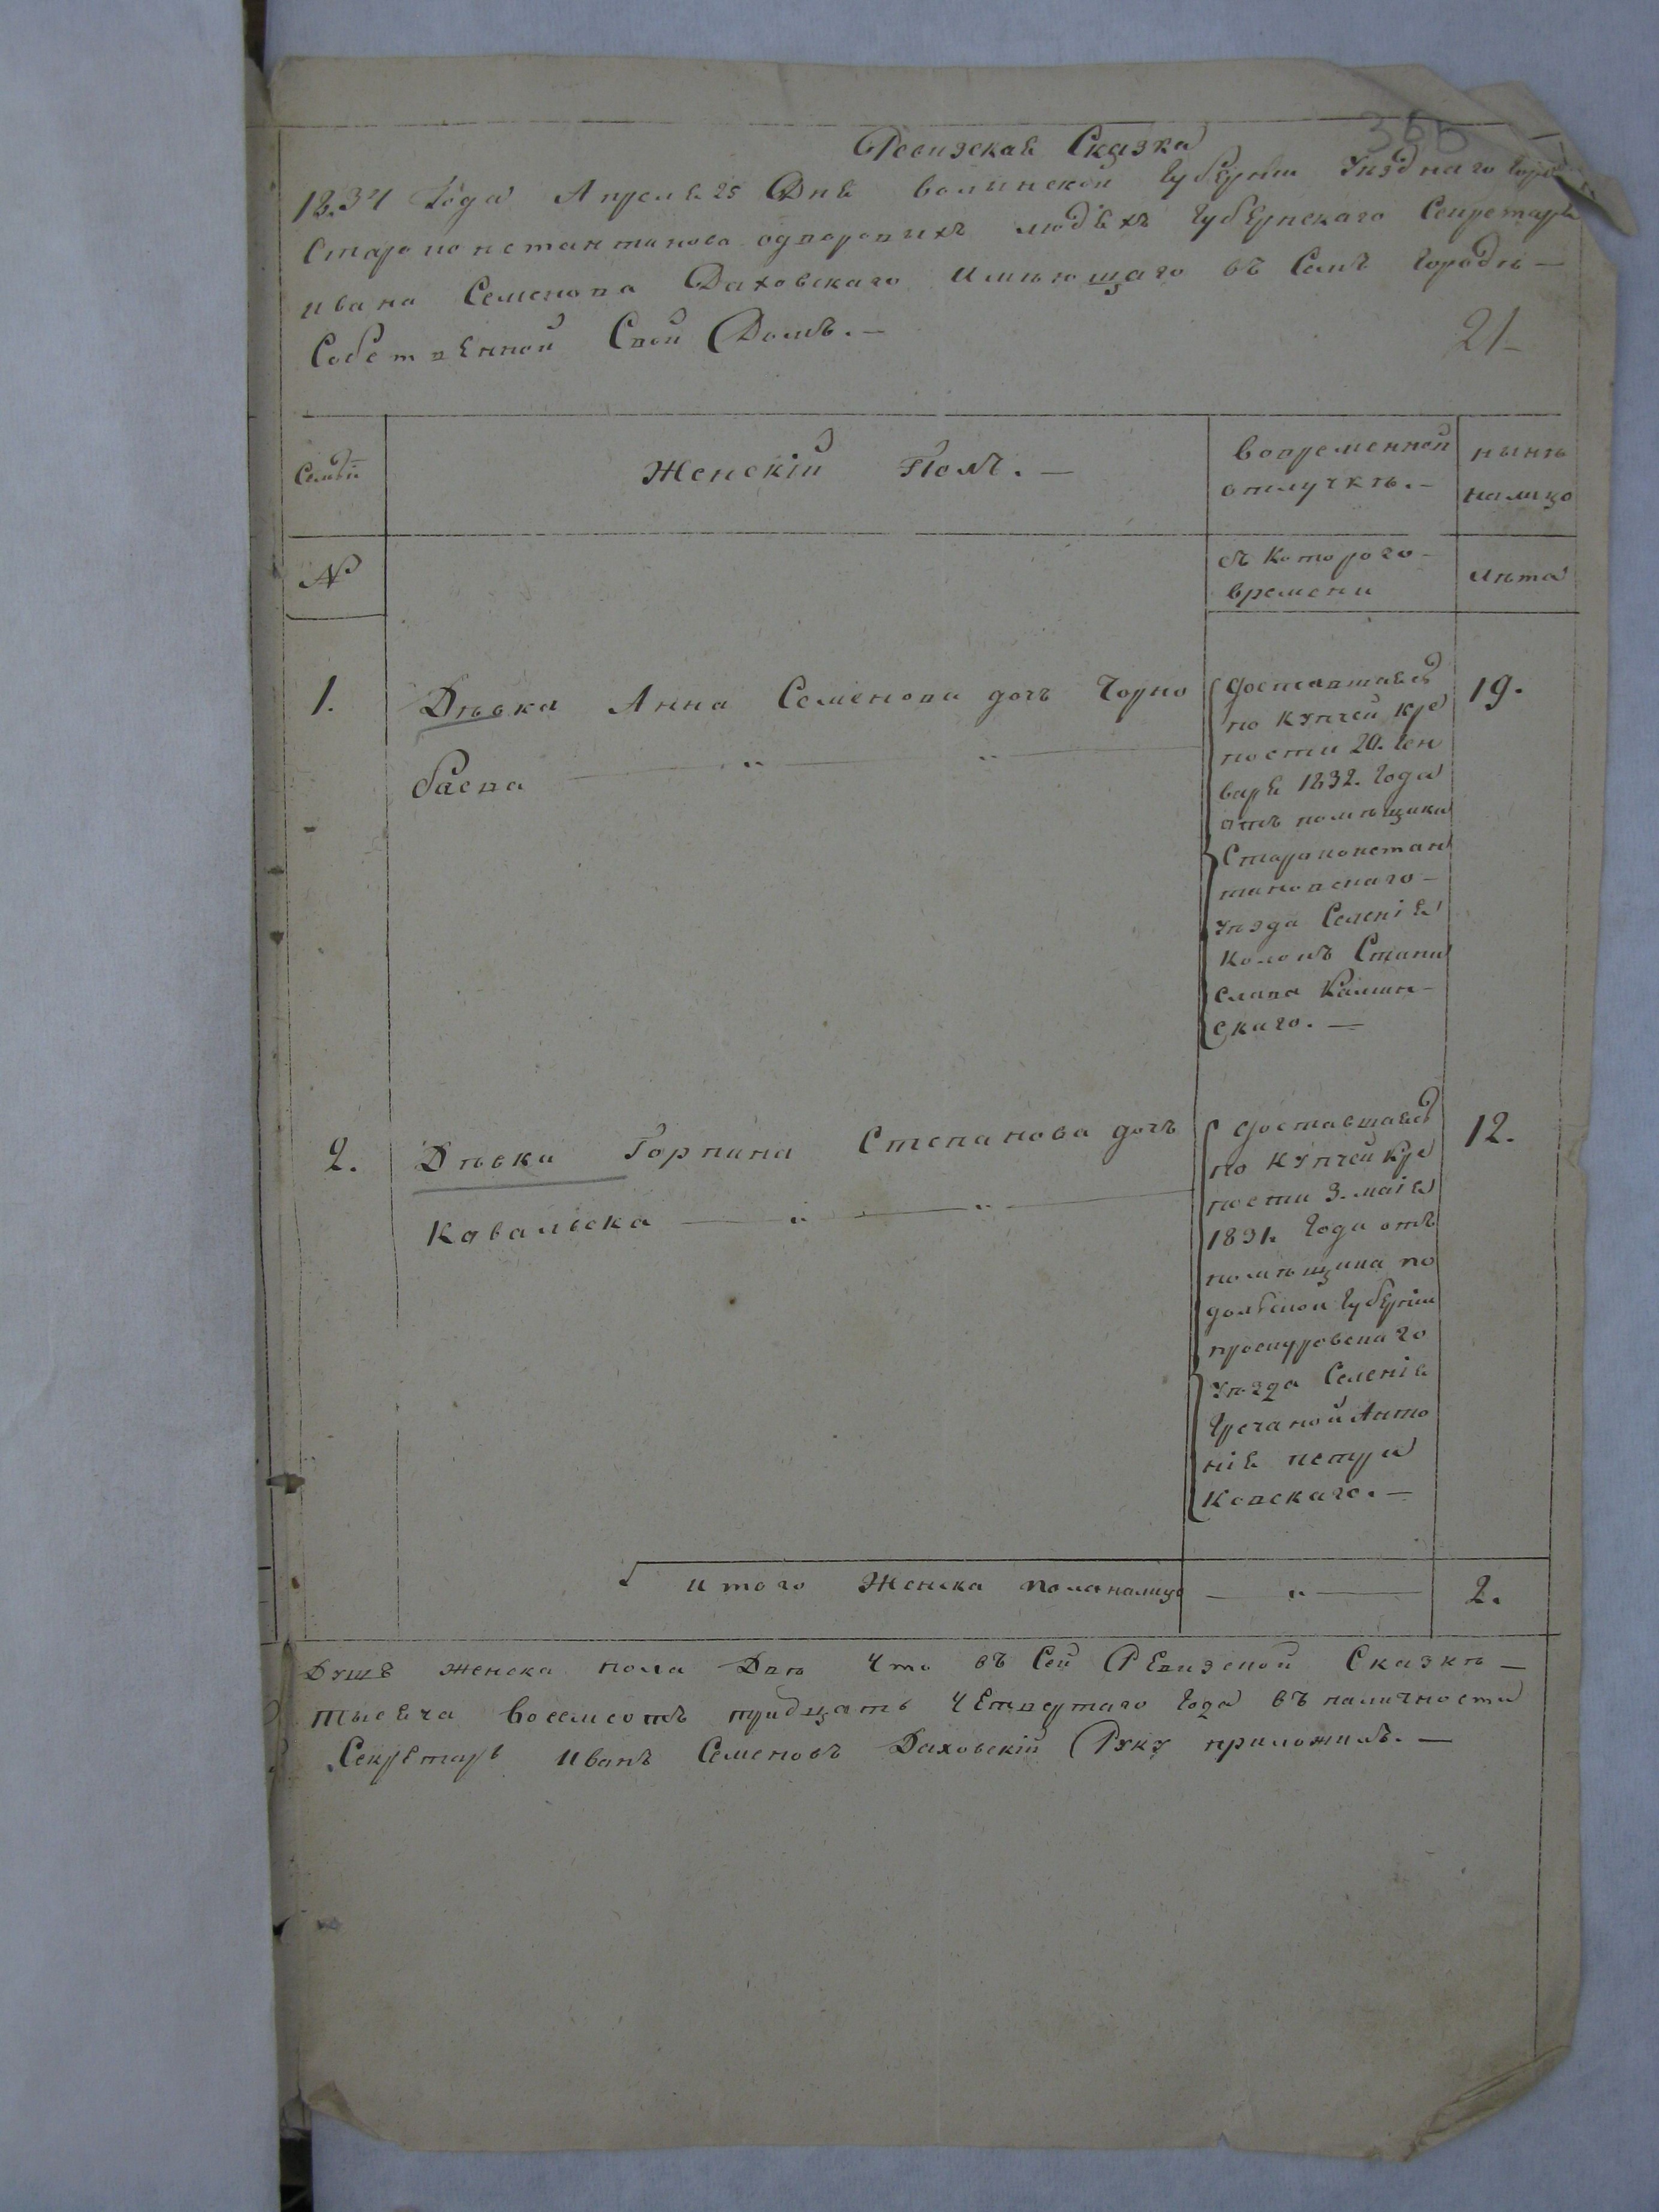 366
Ревизская Сказка
1834 Года Апреля 25 Дня волинской губернии Уездного горо
Староконстантинова одворовихъ людяхъ Губернского Секретаря
ивана Семенова Даховскаго имеющаго въ Семъ городѣ —
Собственной Свой Домъ. —
21
Семьи
Женскій Полъ. —
вовременной отлучкѣ. —
нынѣ налицо
№
съ котораго — времени
лѣта
1. Дѣвка Анна Семенова дочъ Чорно
баева — " — " —
доставшаяся
по купчей кре
пости 20. Ген
варя 1832. Года
отъ помѣщика
Староконстан
тиновскаго —
уѣзда Селенія
Стани
слава Камин —
скаго. —
19.
2. Дѣвка Горпина Степанова дочъ
Ковальска — " — " —
доставшаяся
по купчей кре
пости 3. маія
1831. Года отъ
помѣщика по
дольской Губерніи
проскуровскаго
уѣзда Селенія
Гречаной Анто
нія петра
ковскаго. —
12.
итого Женска пола налицо — " — 2.
Душъ женска пола Двѣ Что въ Сей Ревизской Сказкѣ —
тысяча восемсотъ тридцать Четвертаго Года въ наличности
Секретарь Иванъ Семеновъ Даховскій Руку приложилъ. —